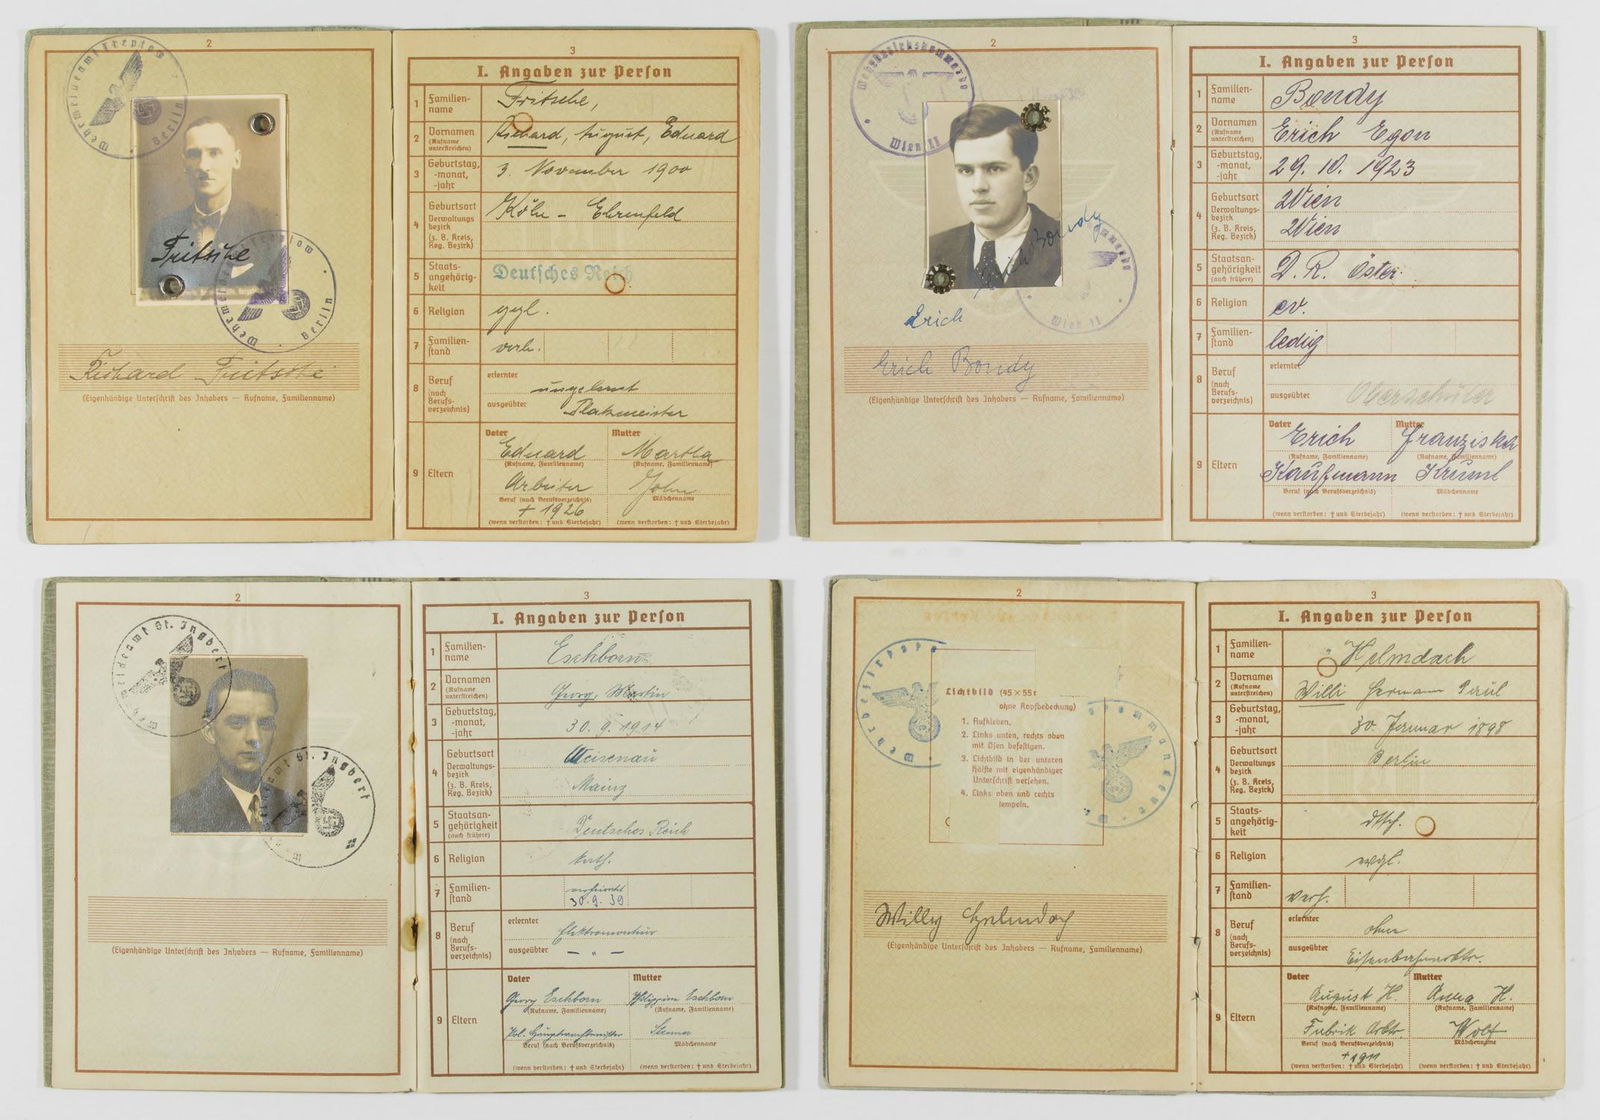 2
Wehrmeldeamt Treptow
Berlin
Fritsche
Wehrmeldeamt Treptow
Berlin
Richard Fritsche
(Eigenhändige Unterschrift des Inhabers — Rufname, Familienname)
3
I. Angaben zur Person
1 Familien-
name
Fritsche,
2 Vornamen
(Rufname
unterstreichen)
Richard, August, Eduard
3 Geburtstag,
-monat,
-jahr
3. November 1900
4 Geburtsort
Verwaltungs-
bezirk
(z. B. Kreis,
Reg. Bezirk)
Köln - Ehrenfeld
5 Staats-
angehörig-
keit
Deutsches Reich
6 Religion
ggl.
7 Familien-
stand
verh.
8 Beruf
(nach
Berufs-
verzeichnis)
erlernter
ungelernt
ausgeübter
Platzmeister
9 Eltern
Vater
Mutter
Eduard
Martha
(Rufname, Familienname)
(Rufname, Familienname)
Arbeiter
John
Beruf (nach Berufsverzeichnis)
Mädchenname
+ 1926
(wenn verstorben: † und Sterbejahr)
(wenn verstorben: † und Sterbejahr)
2
Wehrbezirkskommando
Wien II
Erich Bondy
Wien II
Erich
Erich Bondy
(Eigenhändige Unterschrift des Inhabers — Rufname, Familienname)
3
I. Angaben zur Person
1 Familien-
name
Bondy
2 Vornamen
(Rufname
unterstreichen)
Erich Egon
3 Geburtstag,
-monat,
-jahr
29. 10. 1923
4 Geburtsort
Verwaltungs-
bezirk
(z. B. Kreis,
Reg. Bezirk)
Wien
Wien
5 Staatsan-
gehörigkeit
(auch frühere)
D. R. Öster.
6 Religion
ev.
7 Familien-
stand
ledig
8 Beruf
(nach
Berufs-
verzeichnis)
erlernter
ausgeübter
Oberschüler
9 Eltern
Vater
Mutter
Erich
Franziska
(Rufname, Familienname)
(Rufname, Familienname)
Kaufmann
Kreuml
Beruf (nach Berufsverzeichnis)
Mädchenname
(wenn verstorben: † und Sterbejahr)
(wenn verstorben: † und Sterbejahr)
2
Wehrmeldeamt St. Ingbert
Wehrmeldeamt St. Ingbert
(Eigenhändige Unterschrift des Inhabers — Rufname, Familienname)
3
I. Angaben zur Person
1 Familien-
name
Eschborn
2 Vornamen
(Rufname
unterstreichen)
Georg, Martin
3 Geburtstag,
-monat,
-jahr
30. 9. 1914
4 Geburtsort
Verwaltungs-
bezirk
(z. B. Kreis,
Reg. Bezirk)
Weisenau
Mainz
5 Staatsan-
gehörigkeit
(auch frühere)
Deutsches Reich
6 Religion
kath.
7 Familien-
stand
verheiratet
30. 9. 39
8 Beruf
(nach
Berufs-
verzeichnis)
erlernter
Elektromonteur
ausgeübter
— " —
9 Eltern
Vater
Mutter
Georg Eschborn
Philippine Eschborn
(Rufname, Familienname)
(Rufname, Familienname)
Pol. Hauptwachtmeister
Beruf (nach Berufsverzeichnis)
Mädchenname
(wenn verstorben: † und Sterbejahr)
(wenn verstorben: † und Sterbejahr)
2
Lichtbild (45×55
ohne Kopfbedeckung)
1. Aufkleben.
2. Links unten, rechts oben
mit Ösen befestigen.
3. Lichtbild in der unteren
Hälfte mit eigenhändiger
Unterschrift versehen.
4. Links oben und rechts
stempeln.
Willy Helmdach
(Eigenhändige Unterschrift des Inhabers — Rufname, Familienname)
3
I. Angaben zur Person
1 Familien-
name
Helmdach
2 Vornamen
(Rufname
unterstreichen)
Willi Hermann Paul
3 Geburtstag,
-monat,
-jahr
30. Januar 1898
4 Geburtsort
Verwaltungs-
bezirk
(z. B. Kreis,
Reg. Bezirk)
Berlin
5 Staats-
angehörig-
keit
dtsch.
6 Religion
evgl.
7 Familien-
stand
verh.
8 Beruf
(nach
Berufs-
verzeichnis)
erlernter
ohne
ausgeübter
9 Eltern
Vater
Mutter
August H.
Anna H.
(Rufname, Familienname)
(Rufname, Familienname)
Fabrik Arbtr.
Wolf
Beruf (nach Berufsverzeichnis)
Mädchenname
+ 1911
(wenn verstorben: † und Sterbejahr)
(wenn verstorben: † und Sterbejahr)